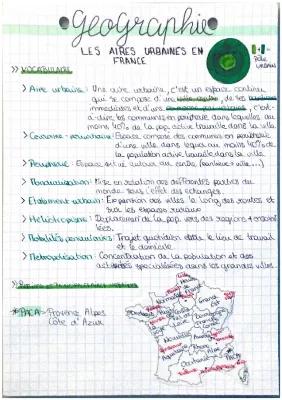 •Geographie•
LES AIRES URBAINES EN
FRANCE
Pôle
urbain
>> VOCABULAIRE
> Aire urbaine : Une aire urbaine, c'est un espace continu
qui se compose d'une ville, de ses
immédiates et d'une, c'est-
à-dire, les communes en périphérie dans lesquelles au
moins 40% de la pop active travaille dans la ville.
> Couronne périurbaine : Espace composé des communes en périphérie
d'une ville dans lequel au moins 40% de
la population active travaille dans la ville.
> Périphérie : Espace situé autour du centre (banlieue + ville...)
> Mondialisation : Mise en relation des différentes parties du
monde sous l'effet des échanges.
> Étalement urbain : Expansion des villes le long des routes et
sur les espaces ruraux
> Héliotropisme : Déplacement de la pop vers des régions + ensoleil
lées.
> Mobilités pendulaires : Trajet quotidien entre le lieu de travail
et le domicile
> Métropolisation : Concentration de la population et des
activités spécialisées dans les grandes villes.
* PACA : Provence Alpes
Côte d'Azur
Normandie
Grand Est
Bretagne
Nouvelle
Aquitaine
Rhône
Alpes
Occitanie
PACA